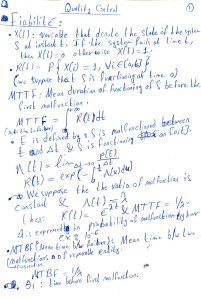 Quality Control ①
Fiabilité:
• X(t): variable that denote the state of the system
S at instant t. If the system fails at time t,
then X(t)=0 otherwise X(t)=1.
• R(t) = P{ X(i) = 1, ∀i∈[0,t] }
(we suppose that S is functioning at time 0)
MTTF: Mean duration of functioning of S before the
first malfunction.
MTTF = ∫ R(t)dt
• E is defined by: S is malfunctioned between
t and Δt S is functioning on [0,t].
Λ(t) = lim Δt→0 P(E)/Δt
R(t) = exp(-∫ Λ(u)du)
We suppose the the ratio of malfunction is
constant & Λ(t) = λ
thus: R(t) = e^-λt & MTTF = 1/λ.
λ is expressed in probability of malfunction by hour
• MTBF (Mean time b/w failures): Mean time b/w two
malfunctions of a reparable entity.
MTBF = 1/λ
θ1: time before first malfunction.